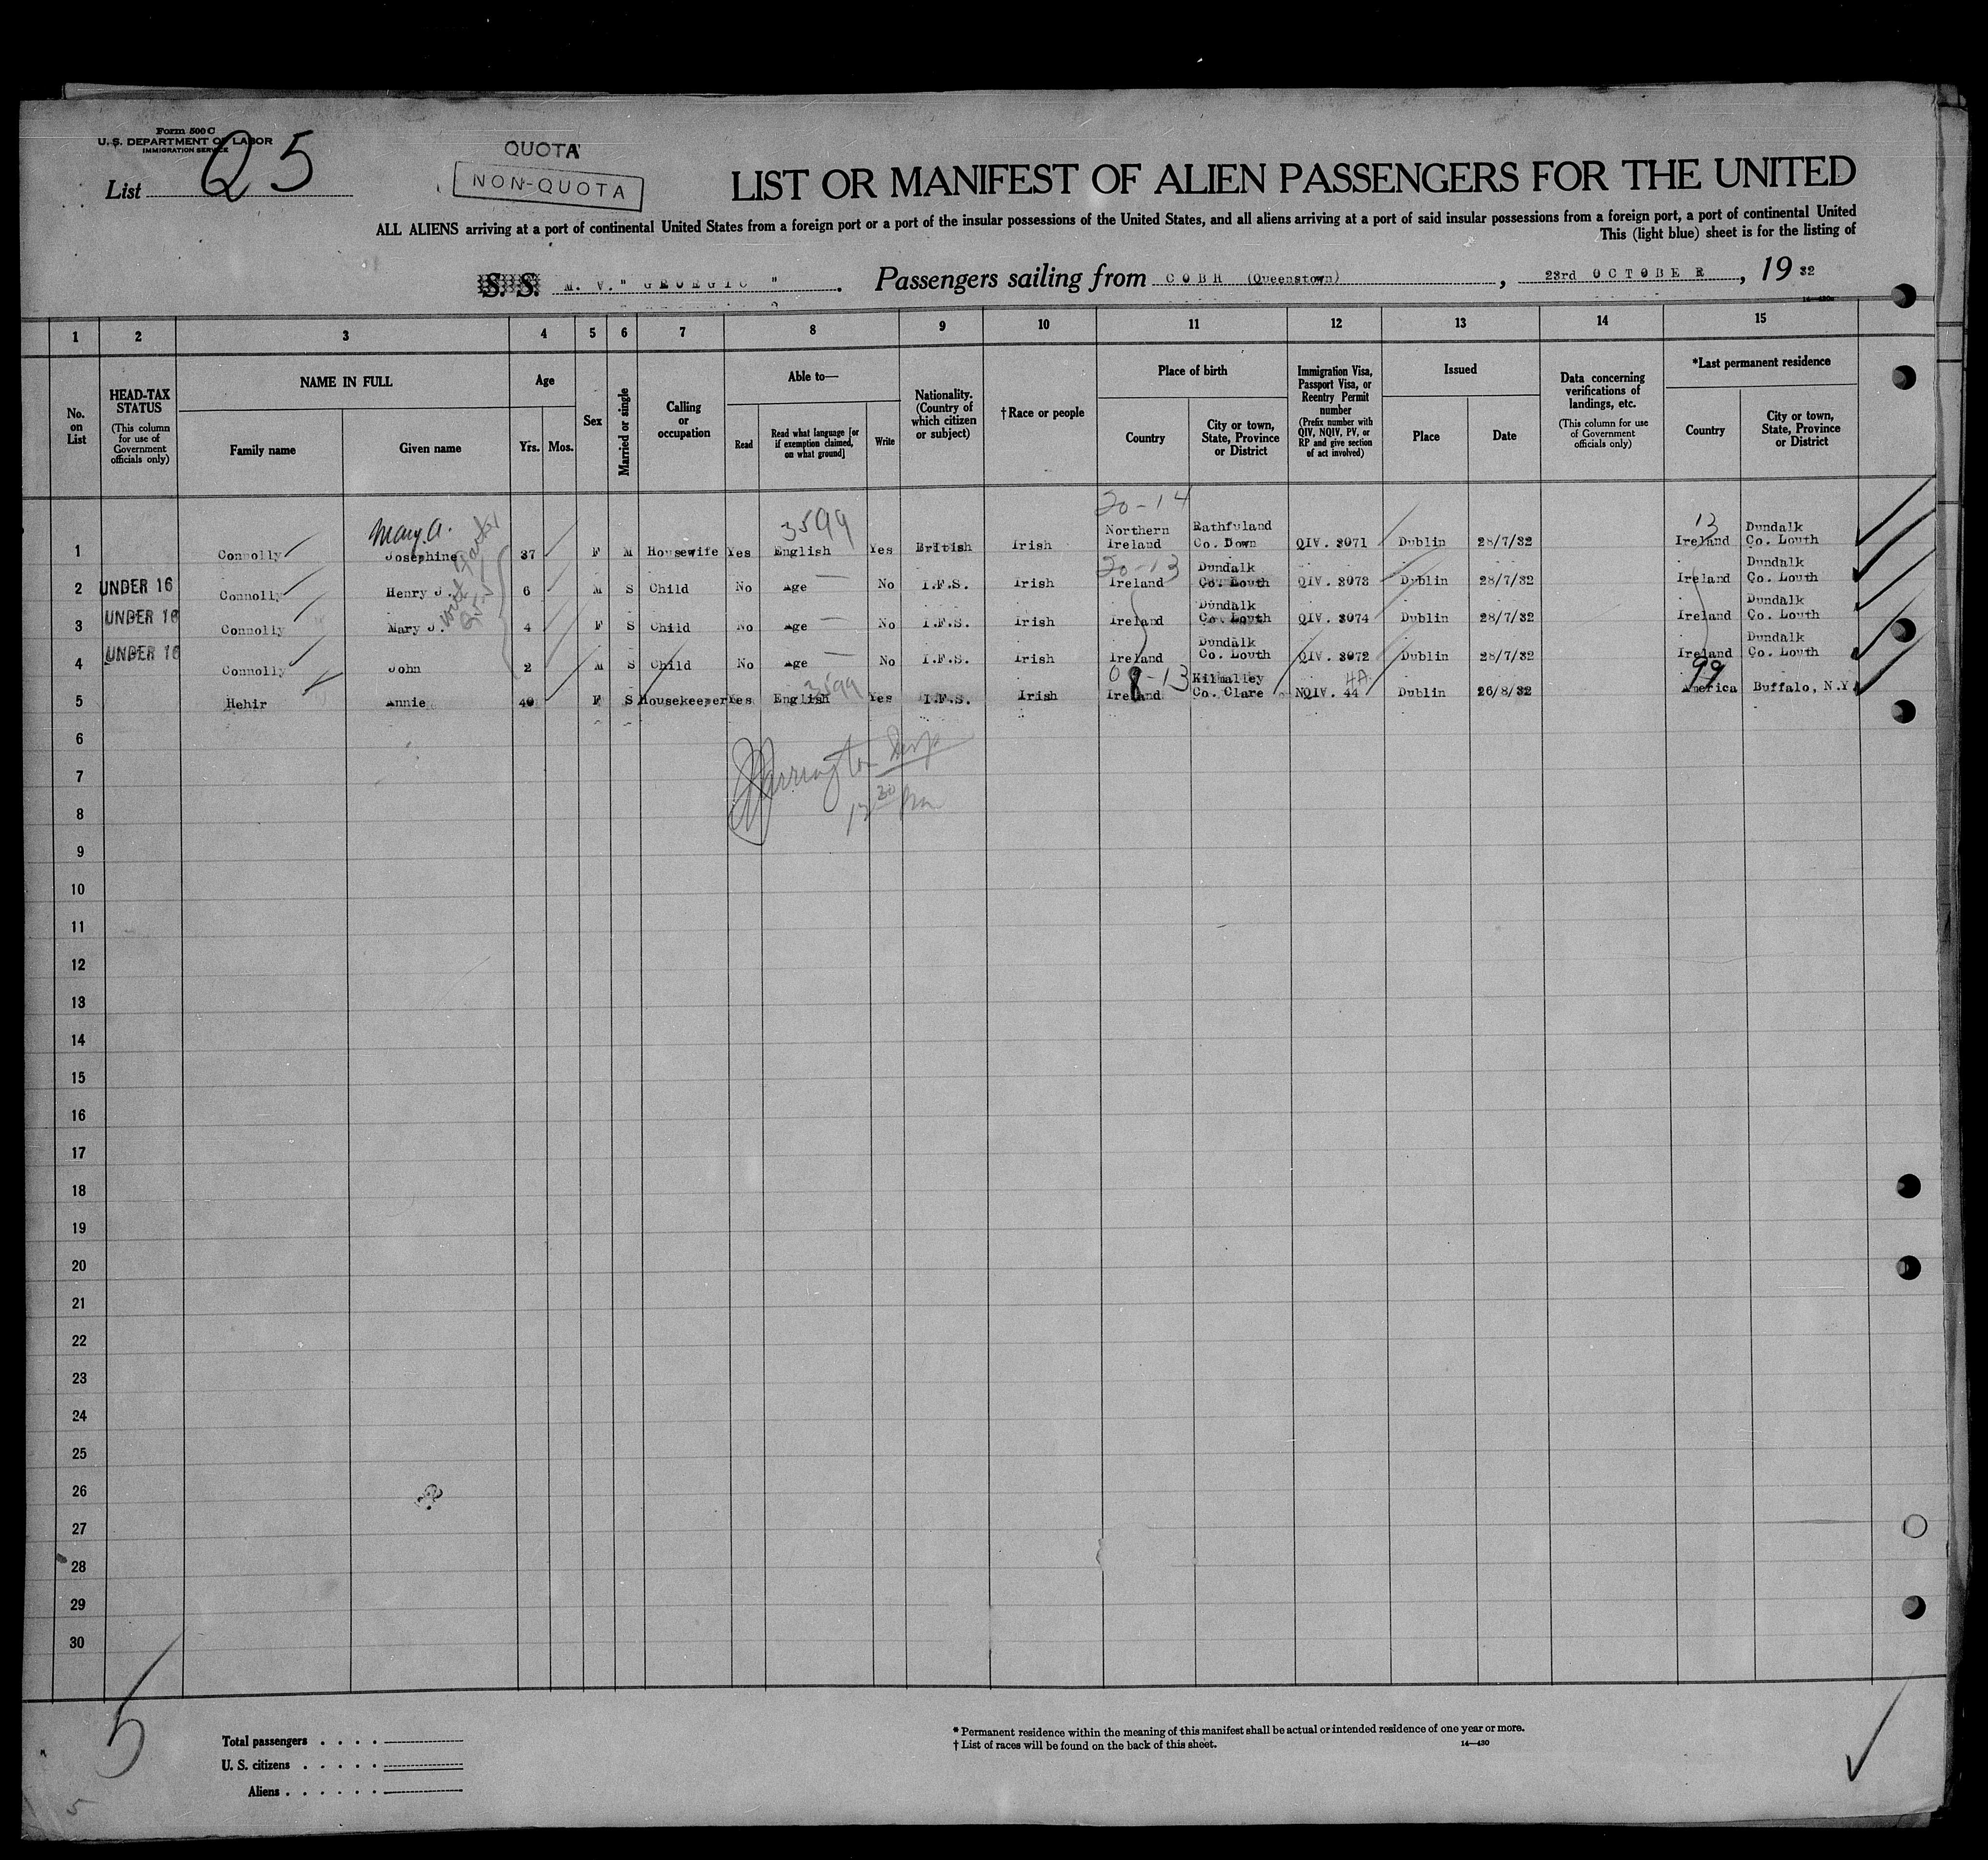 Form 500 C
U. S. DEPARTMENT OF LABOR
IMMIGRATION SERVICE
List 25
QUOTA
NON-QUOTA
LIST OR MANIFEST OF ALIEN PASSENGERS FOR THE UNITED
ALL ALIENS arriving at a port of continental United States from a foreign port or a port of the insular possessions of the United States, and all aliens arriving at a port of said insular possessions from a foreign port, a port of continental United
This (light blue) sheet is for the listing of
S. S. M. V. " GEORGIC " . Passengers sailing from COBH (Queenstown) , 23rd OCTOBER , 19 32
14—430
1 2 3 4 5 6 7 8 9 10 11 12 13 14 15
No. on List
HEAD-TAX STATUS
(This column for use of Government officials only)
NAME IN FULL
Family name
Given name
Age
Yrs. Mos.
Sex
Married or single
Calling or occupation
Able to—
Read
Read what language [or if exemption claimed, on what ground]
Write
Nationality. (Country of which citizen or subject)
†Race or people
Place of birth
Country
City or town, State, Province or District
Immigration Visa, Passport Visa, or Reentry Permit number
(Prefix number with QIV, NQIV, PV, or RP and give section of act involved)
Issued
Place
Date
Data concerning verifications of landings, etc.
(This column for use of Government officials only)
*Last permanent residence
Country
City or town, State, Province or District
20-14
Mary A. 3599 13
1 Connolly Josephine 37 F M Housewife Yes English Yes British Irish Northern Ireland Rathfuland Co. Down QIV. 3071 Dublin 28/7/32 Ireland Dundalk Co. Louth
20-13
2 UNDER 16 Connolly Henry J. 6 M S Child No Age No I.F.S. Irish Ireland Dundalk Co. Louth QIV. 3073 Dublin 28/7/32 Ireland Dundalk Co. Louth
3 UNDER 16 Connolly Mary J. 4 F S Child No Age No I.F.S. Irish Ireland Dundalk Co. Louth QIV. 3074 Dublin 28/7/32 Ireland Dundalk Co. Louth
4 UNDER 16 Connolly John 2 M S Child No Age No I.F.S. Irish Ireland Dundalk Co. Louth QIV. 3072 Dublin 28/7/32 Ireland Dundalk Co. Louth
3599 4A 99
5 Hehir Annie 40 F S Housekeeper Yes English Yes I.F.S. Irish Ireland Kilmalley Co. Clare NQIV. 44 Dublin 26/8/32 America Buffalo, N.Y.
6
7
8
9
10
11
12
13
14
15
16
17
18
19
20
21
22
23
24
25
26
27
28
29
30
5
Total passengers . . . .
U. S. citizens . . . . .
Aliens . . . . . .
* Permanent residence within the meaning of this manifest shall be actual or intended residence of one year or more.
† List of races will be found on the back of this sheet.
14—430
5